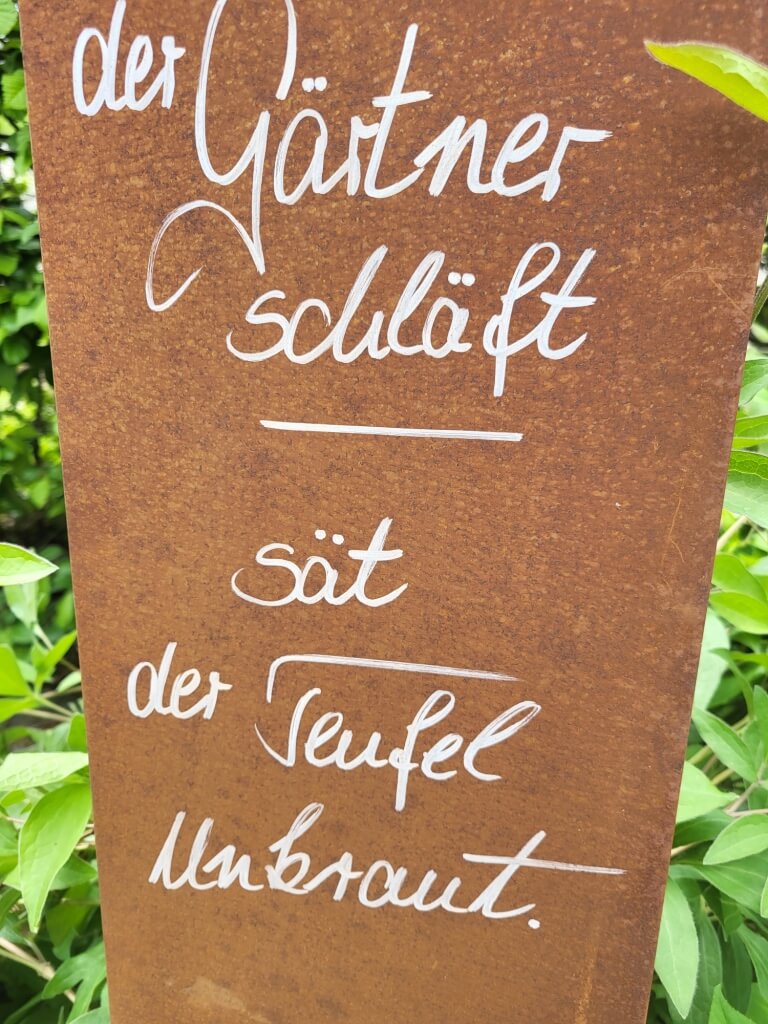 der Gärtner
schläft
sät
der Teufel
Unkraut.